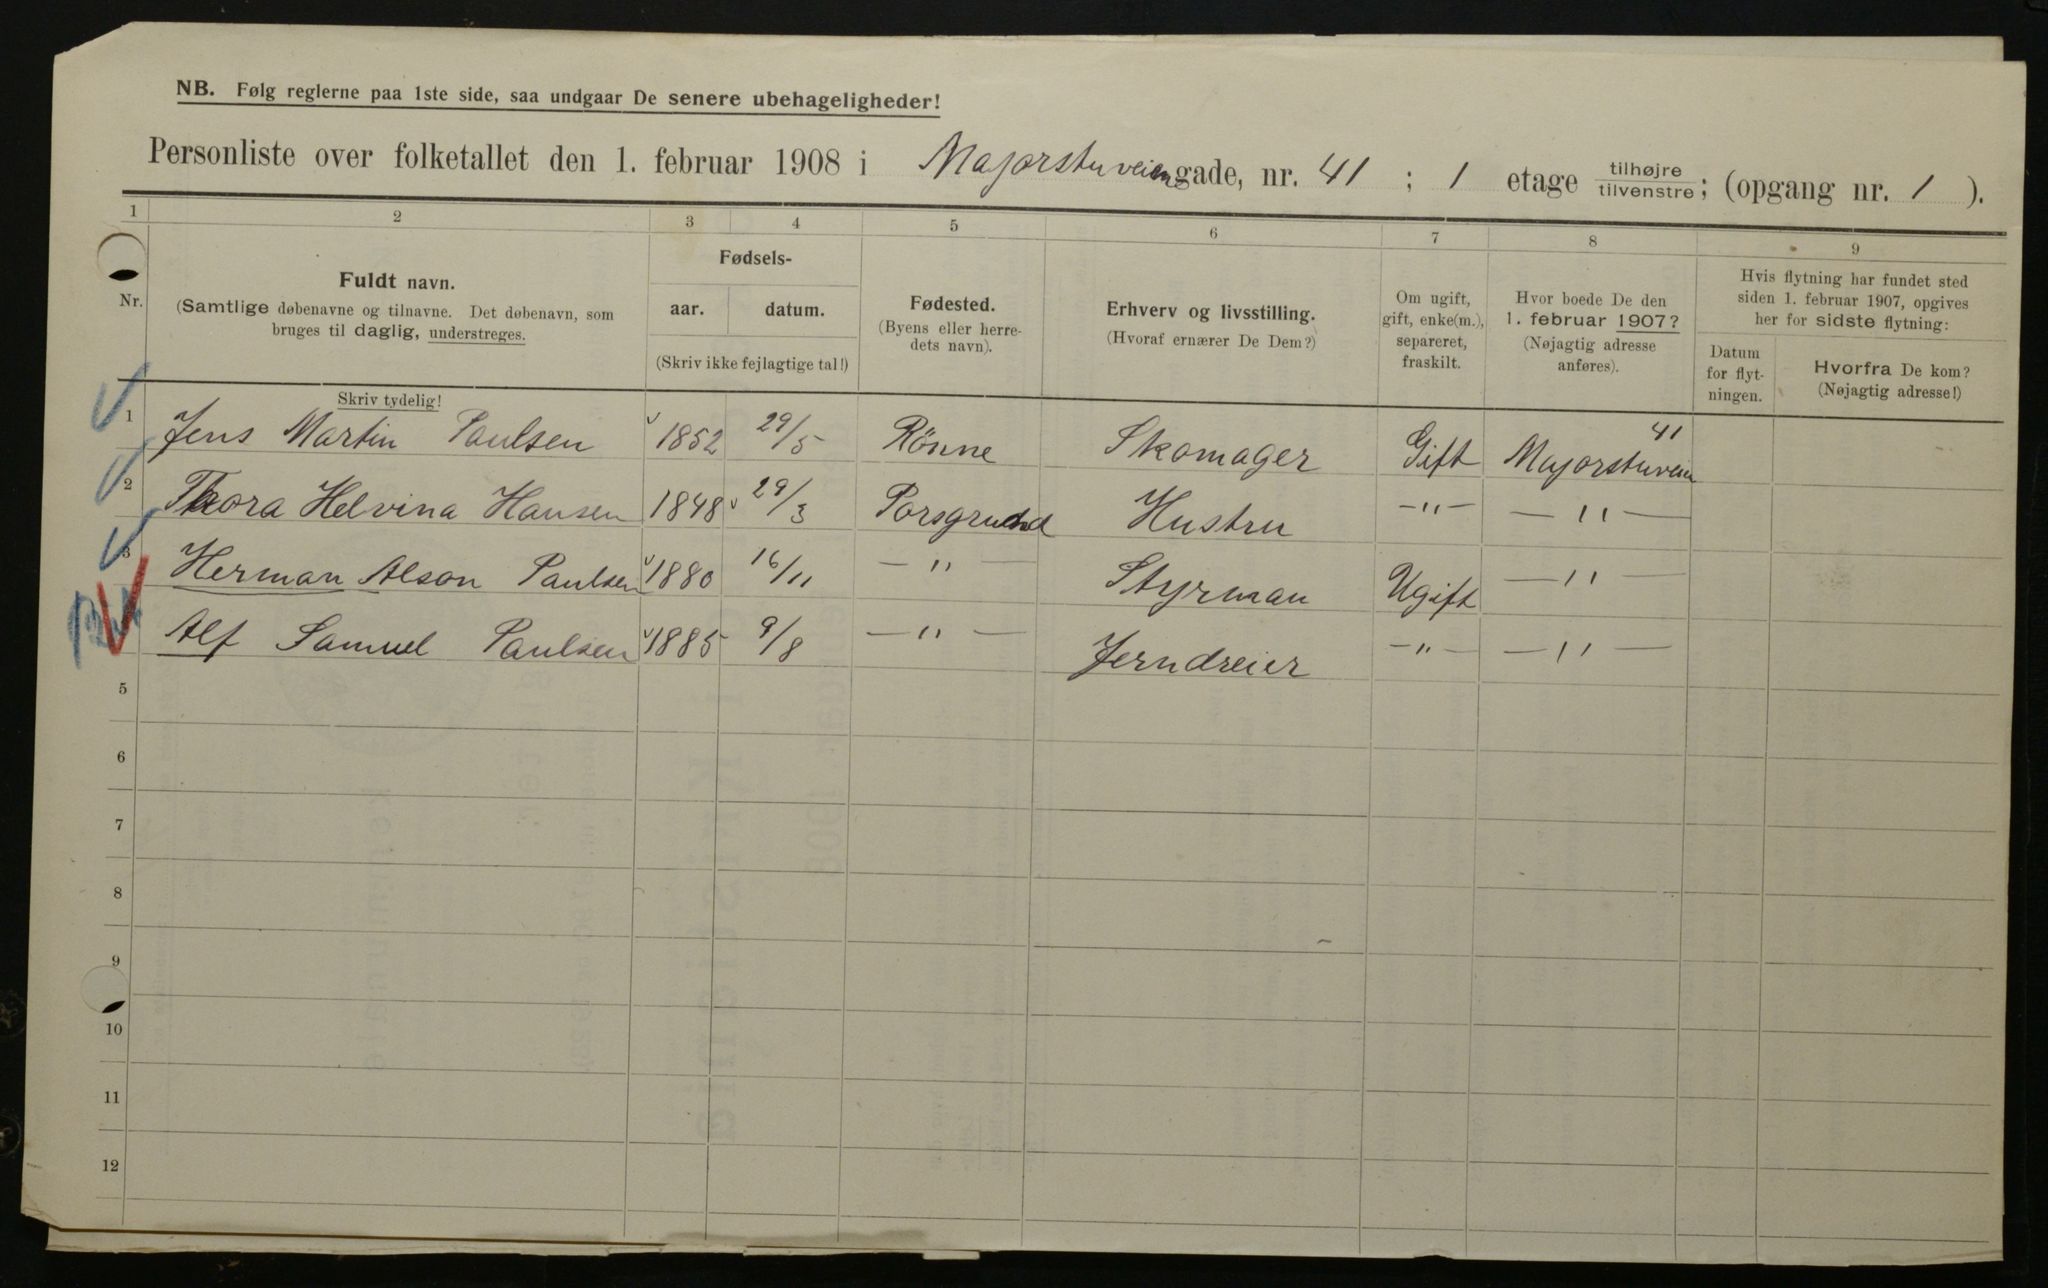 NB. Følg reglerne paa 1ste side, saa undgaar De senere ubehageligheder!
Personliste over folketallet den 1. februar 1908 i Majorstuveien gade, nr. 41 ; 1 etage tilhøjre tilvenstre; (opgang nr. 1 ).
1 2 3 4 5 6 7 8 9
Nr.
Fuldt navn.
(Samtlige døbenavne og tilnavne. Det døbenavn, som
bruges til daglig, understreges.
Skriv tydelig!
Fødsels-
aar. datum.
(Skriv ikke fejlagtige tal!)
Fødested.
(Byens eller herre-
dets navn).
Erhverv og livsstilling.
(Hvoraf ernærer De Dem?)
Om ugift,
gift, enke(m.),
separeret,
fraskilt.
Hvor boede De den
1. februar 1907?
(Nøjagtig adresse
anføres).
Hvis flytning har fundet sted
siden 1. februar 1907, opgives
her for sidste flytning:
Datum
for flyt-
ningen.
Hvorfra De kom?
(Nøjagtig adresse!)
1 Jens Martin Paulsen 1852 29/5 Rönne Skomager Gift Majorstuveien 41
2 Thora Helvina Hansen 1848 29/3 Porsgrund Hustru —"— —"—
3 Herman Alson Paulsen 1880 16/11 —"— Styrman Ugift —"—
Alf Samuel Paulsen 1885 9/8 —"— Jerndreier —"— —"—
5
6
7
8
9
10
11
12